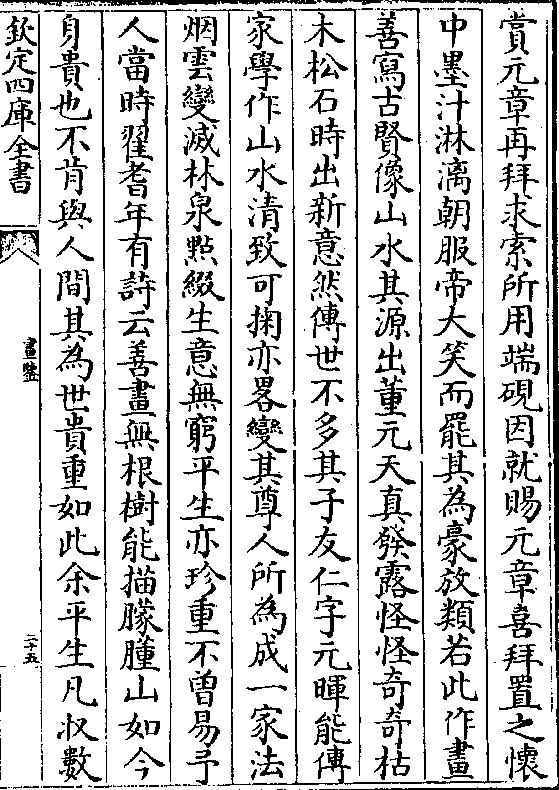 賞元章再拜求索所用端硯因就賜元章喜拜置之懷
中墨汁淋漓朝服帝大笑而罷其為豪放類若此作畫
善寫古賢像山水其源出董元天真發露怪怪奇奇枯
木松石時出新意然傳世不多其子友仁字元暉能傳
家學作山水清致可掬亦畧變其尊人所為成一家法
烟雲變滅林泉㸃綴生意無窮平生亦珍重不曽易予
人當時翟耆年有詩云善畫無根樹能描朦朣山如今
身貴也不肯與人間其為世貴重如此余平生凡收數
欽定四庫全書
畫鑒
二十五